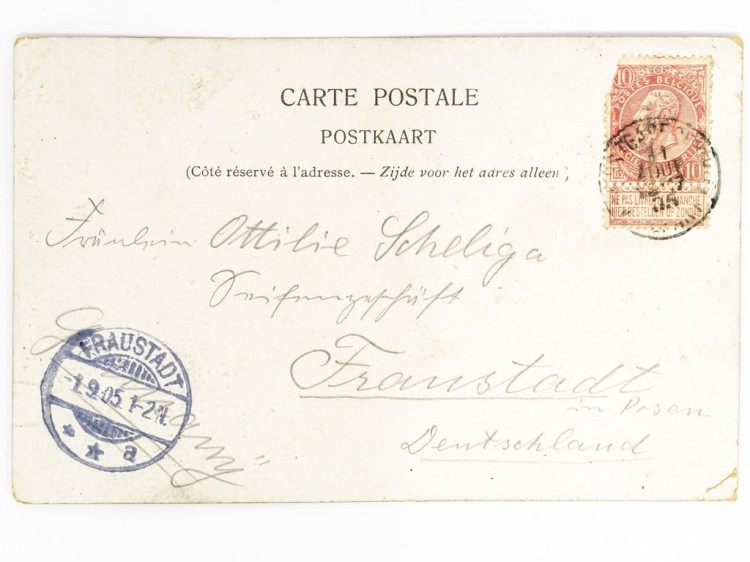 CARTE POSTALE
POSTKAART
(Côté réservé à l'adresse. — Zijde voor het adres alleen)
10 10
POSTES BELGIQUE
10
NE PAS LIVRER LE DIMANCHE
NIET BESTELLEN OP ZONDAG
11
AOUT
05
Fräulein Ottilie Scheliga
Seifengeschäft
Fraustadt
in Posen
Deutschland
FRAUSTADT
-1.9.05 1-2N.
* * a